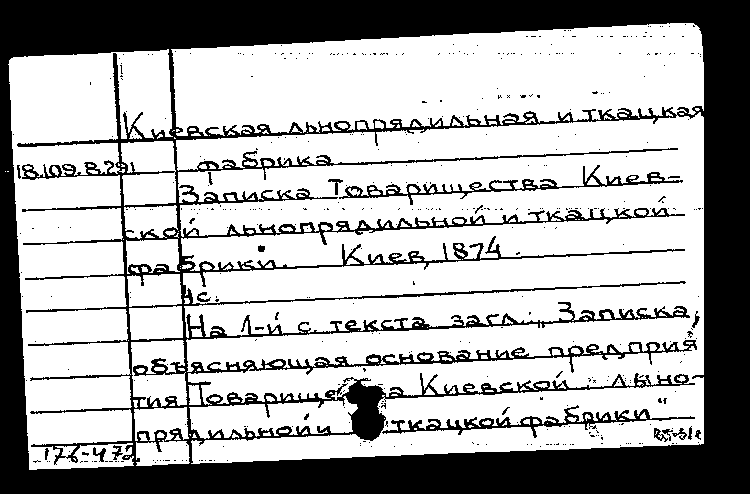 Киевская льнопрядильная и ткацкая
18.109.8.291 фабрика.
Записка Товарищества Киев-
ской льнопрядильной и ткацкой
фабрики. Киев, 1874.
4с.
На 1-й с. текста загл.: „Записка,
объясняющая основание предприя
тия Киевской льно-
прядильной и ткацкой фабрики"
176-472